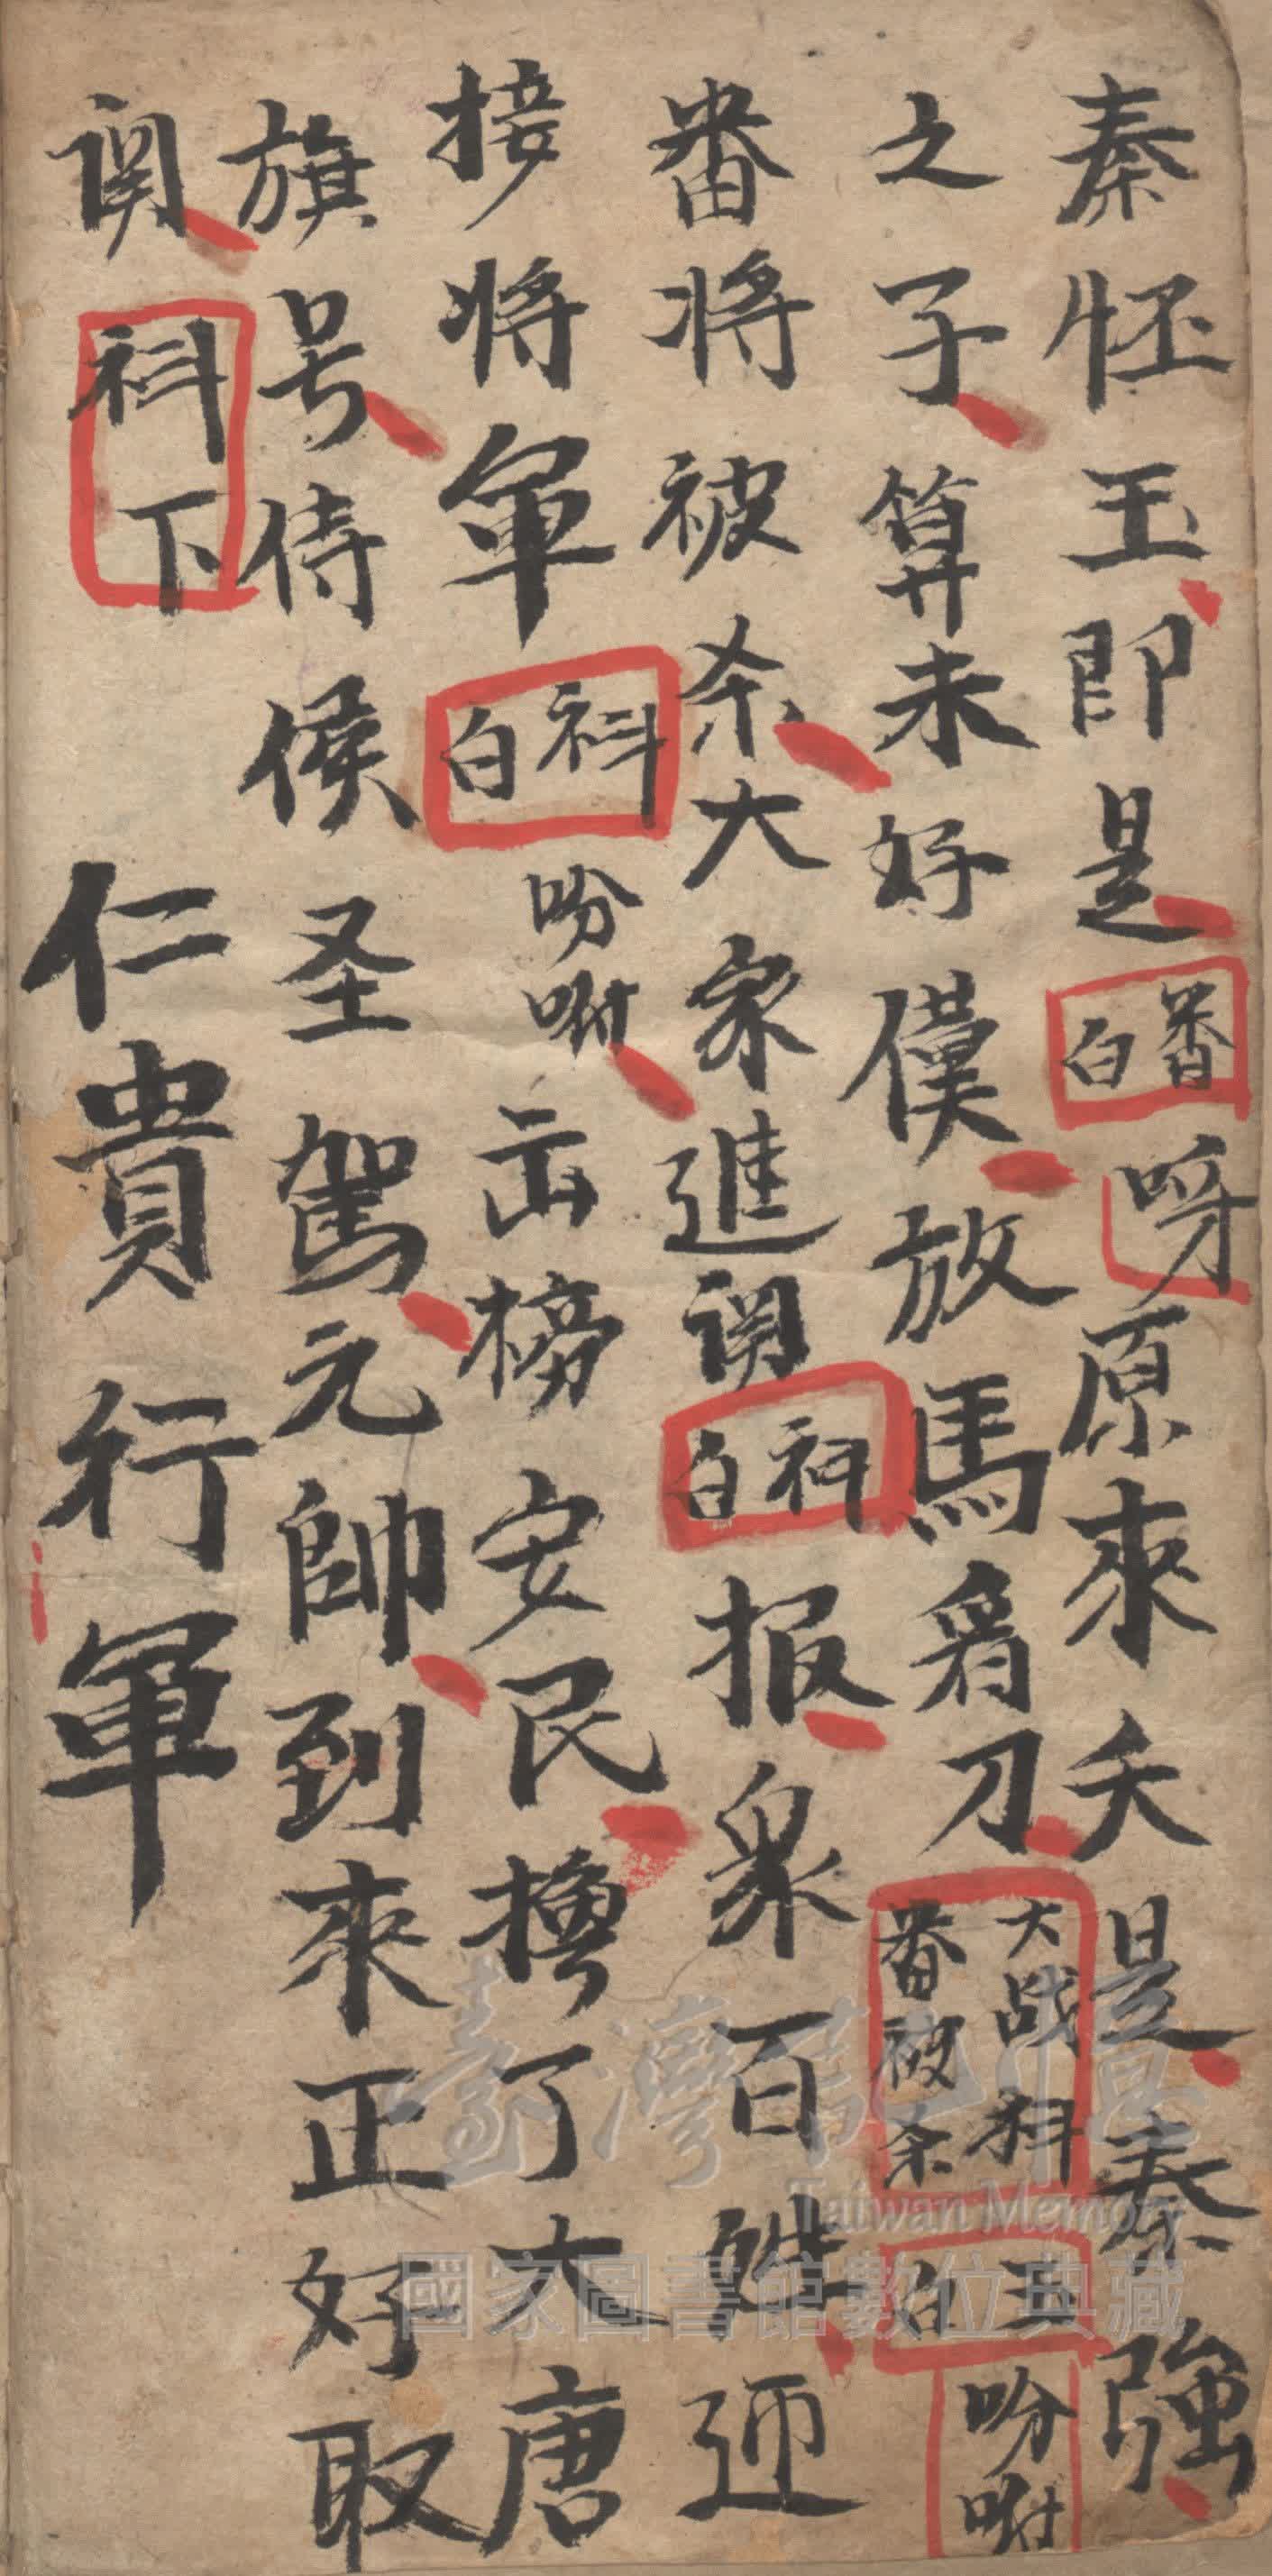 秦怀玉即是番白呀原來夭是秦強
之子算未好僕放馬看刀大战科番被杀王白吩咐
番将被杀大家進関科白报衆百姓迊
接将軍科白吩咐出榜安民換了大唐
旗号侍候圣駕元帥到來正好取
関科下 仁貴行軍
臺灣記憶
Taiwan Memory
國家圖書館數位典藏